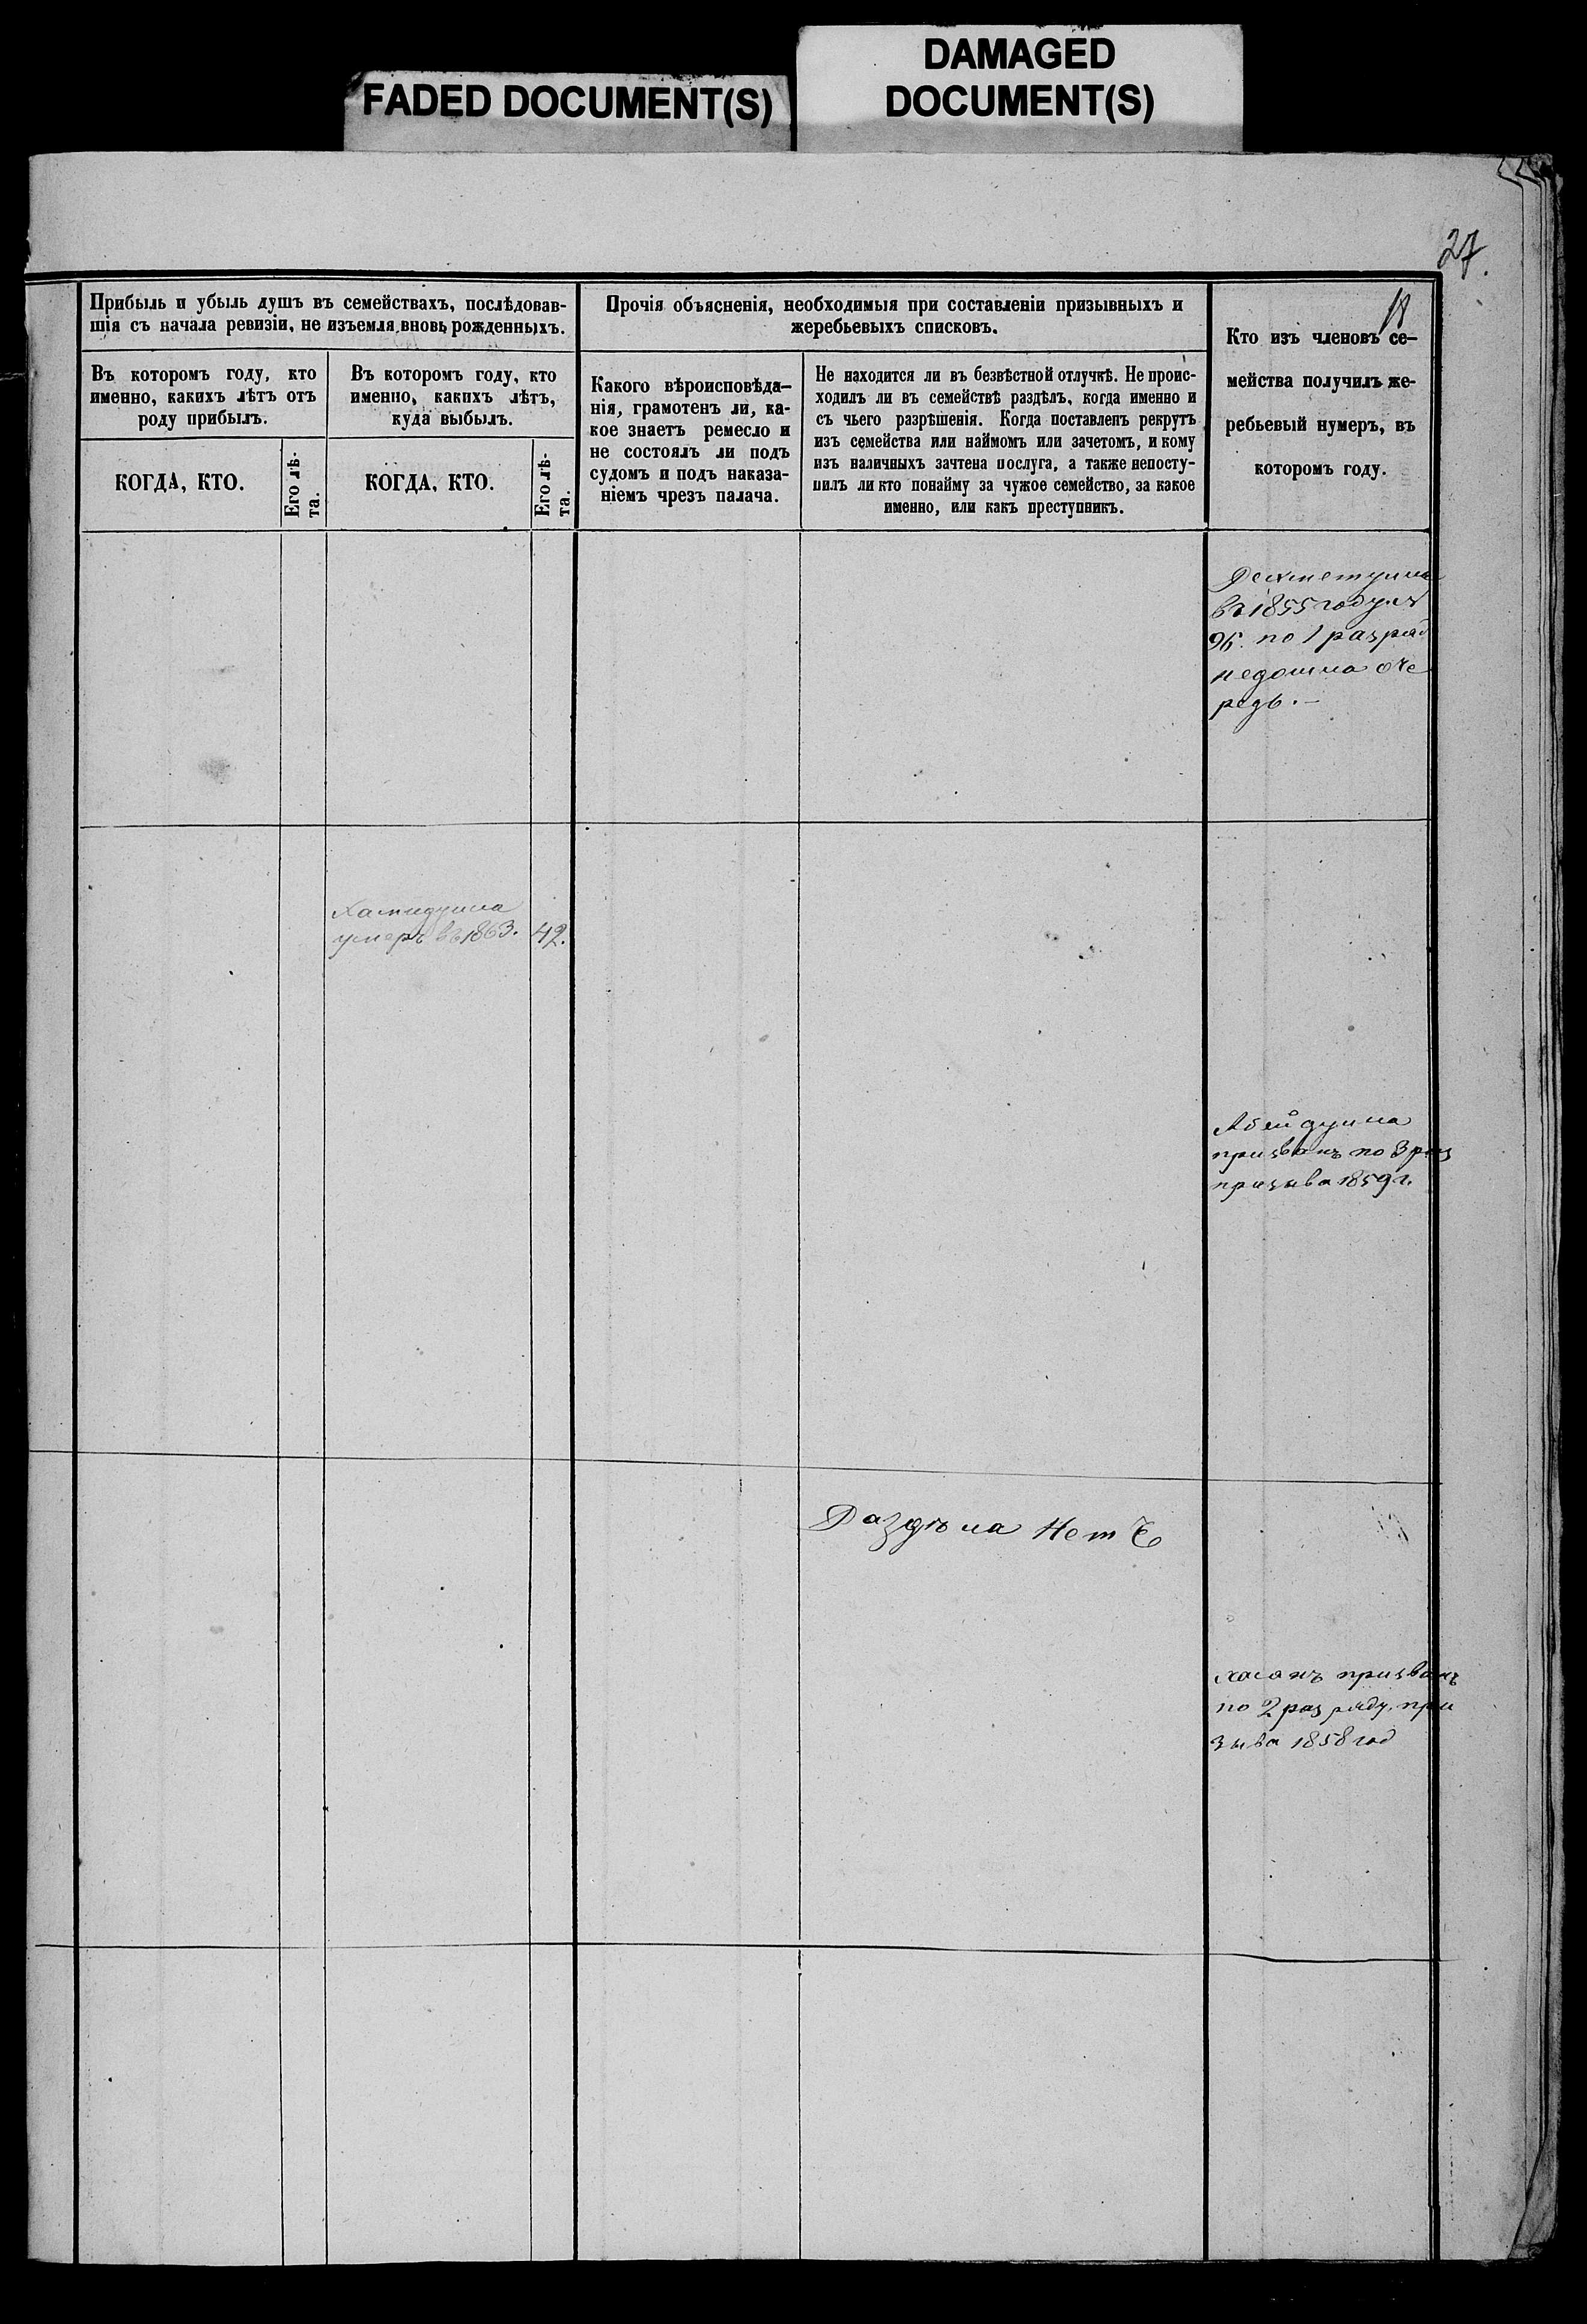 FADED DOCUMENT(S)
DAMAGED
DOCUMENT(S)
27.
18
Прибыль и убыль душъ въ семействахъ, послѣдовав-
шія съ начала ревизіи, не изъемля вновь рожденныхъ.
Въ которомъ году, кто
именно, какихъ лѣтъ отъ
роду прибылъ.
Въ которомъ году, кто
именно, какихъ лѣтъ,
куда выбылъ.
КОГДА, КТО.
Его лѣ-
та.
КОГДА, КТО.
Его лѣ-
та.
Прочія объясненія, необходимыя при составленіи призывныхъ и
жеребьевыхъ списковъ.
Какого вѣроисповѣда-
нія, грамотенъ ли, ка-
кое знаетъ ремесло и
не состоялъ ли подъ
судомъ и подъ наказа-
ніемъ чрезъ палача.
Не находится ли въ безвѣстной отлучкѣ. Не проис-
ходилъ ли въ семействѣ раздѣлъ, когда именно и
съ чьего разрѣшенія. Когда поставленъ рекрутъ
изъ семейства или наймомъ или зачетомъ, и кому
изъ наличныхъ зачтена послуга, а также непосту-
пилъ ли кто понайму за чужое семейство, за какое
именно, или какъ преступникъ.
Кто изъ членовъ се-
мейства получилъ же-
ребьевый нумеръ, въ
которомъ году.
въ 1855 году
96. по 1 разряд
недошла оче
редь. —
Хамидулла
умеръ въ 1863. 42.
Абейдулла
призванъ по 3 раз
призыва 1859 г.
Раздѣла Нетъ
Хасанъ призванъ
по 2 разряду. при
зыва 1858 год